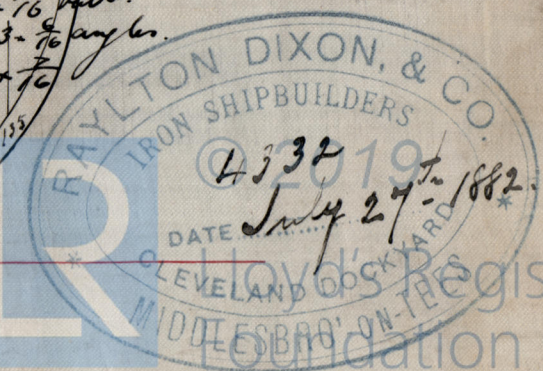 angles.
RAYLTON DIXON, & CO
IRON SHIPBUILDERS
4332
DATE July 27th 1882.
CLEVELAND DOCKYARD
MIDDLESBRO'-ON-TEES
© 2019
Lloyd's Regis
Foundation